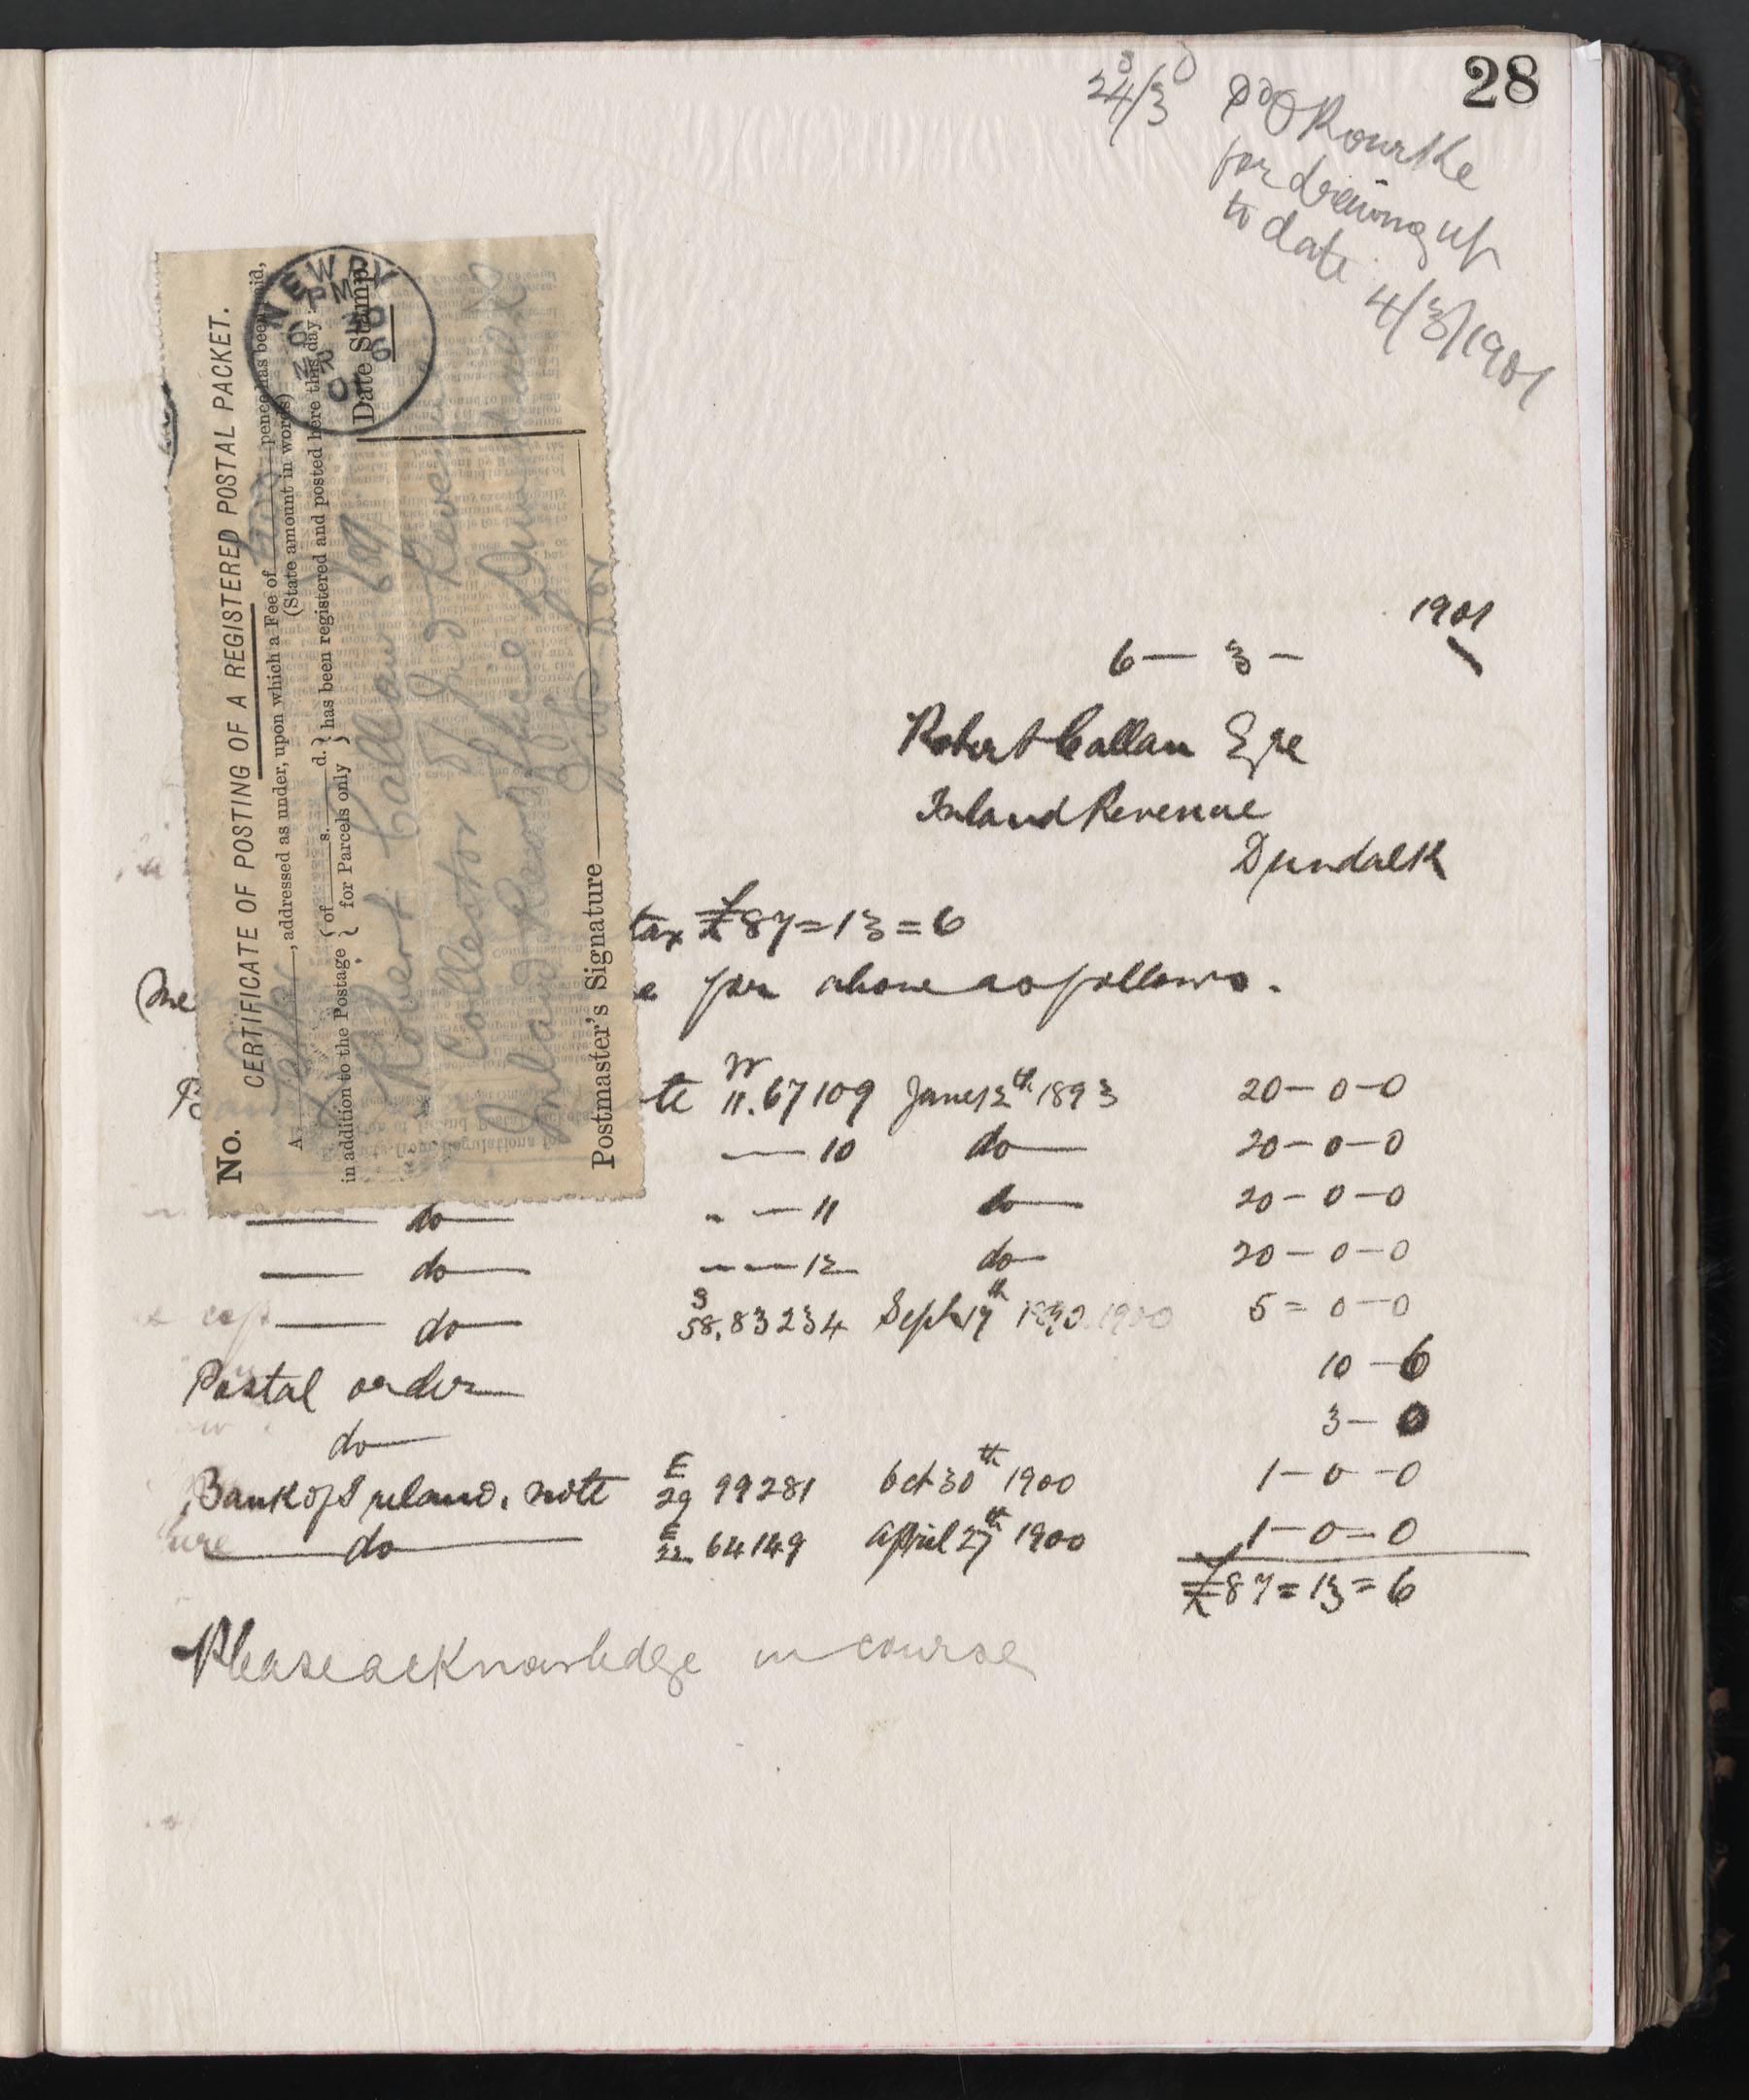 28
24/3
Pd O Rourke
for drawing up
to date
4/3/1901
No. CERTIFICATE OF POSTING OF A REGISTERED POSTAL PACKET.
A, addressed as under, upon which a Fee of pence has been paid,
(State amount in words)
in addition to the Postage { of s. d. } has been registered and posted here this day:
for Parcels only
NEWRY
PM
6 MR
01
Date Stamp.
Robert Callan Esq
Collector of Inld Revenue
Inland Revenue Office Dundalk
Postmaster's Signature
1901
6 — 3 —
Robert Callan Esqe
Inland Revenue
Dundalk
tax £87=13=6
for above as follows.
te 11.67109 Jany 12th 1893 20-0-0
— 10 do 20-0-0
do — 11 do 20-0-0
do — 12 do 20-0-0
do S 58.83234 Sept 17th 1900 5=0-0
Postal order 10-6
do 3-0
Bank of Ireland. note E 29 99281 Oct 30th 1900 1-0-0
do E 22 64149 April 27th 1900 1-0-0
£87=13=6
Please acknowledge in course